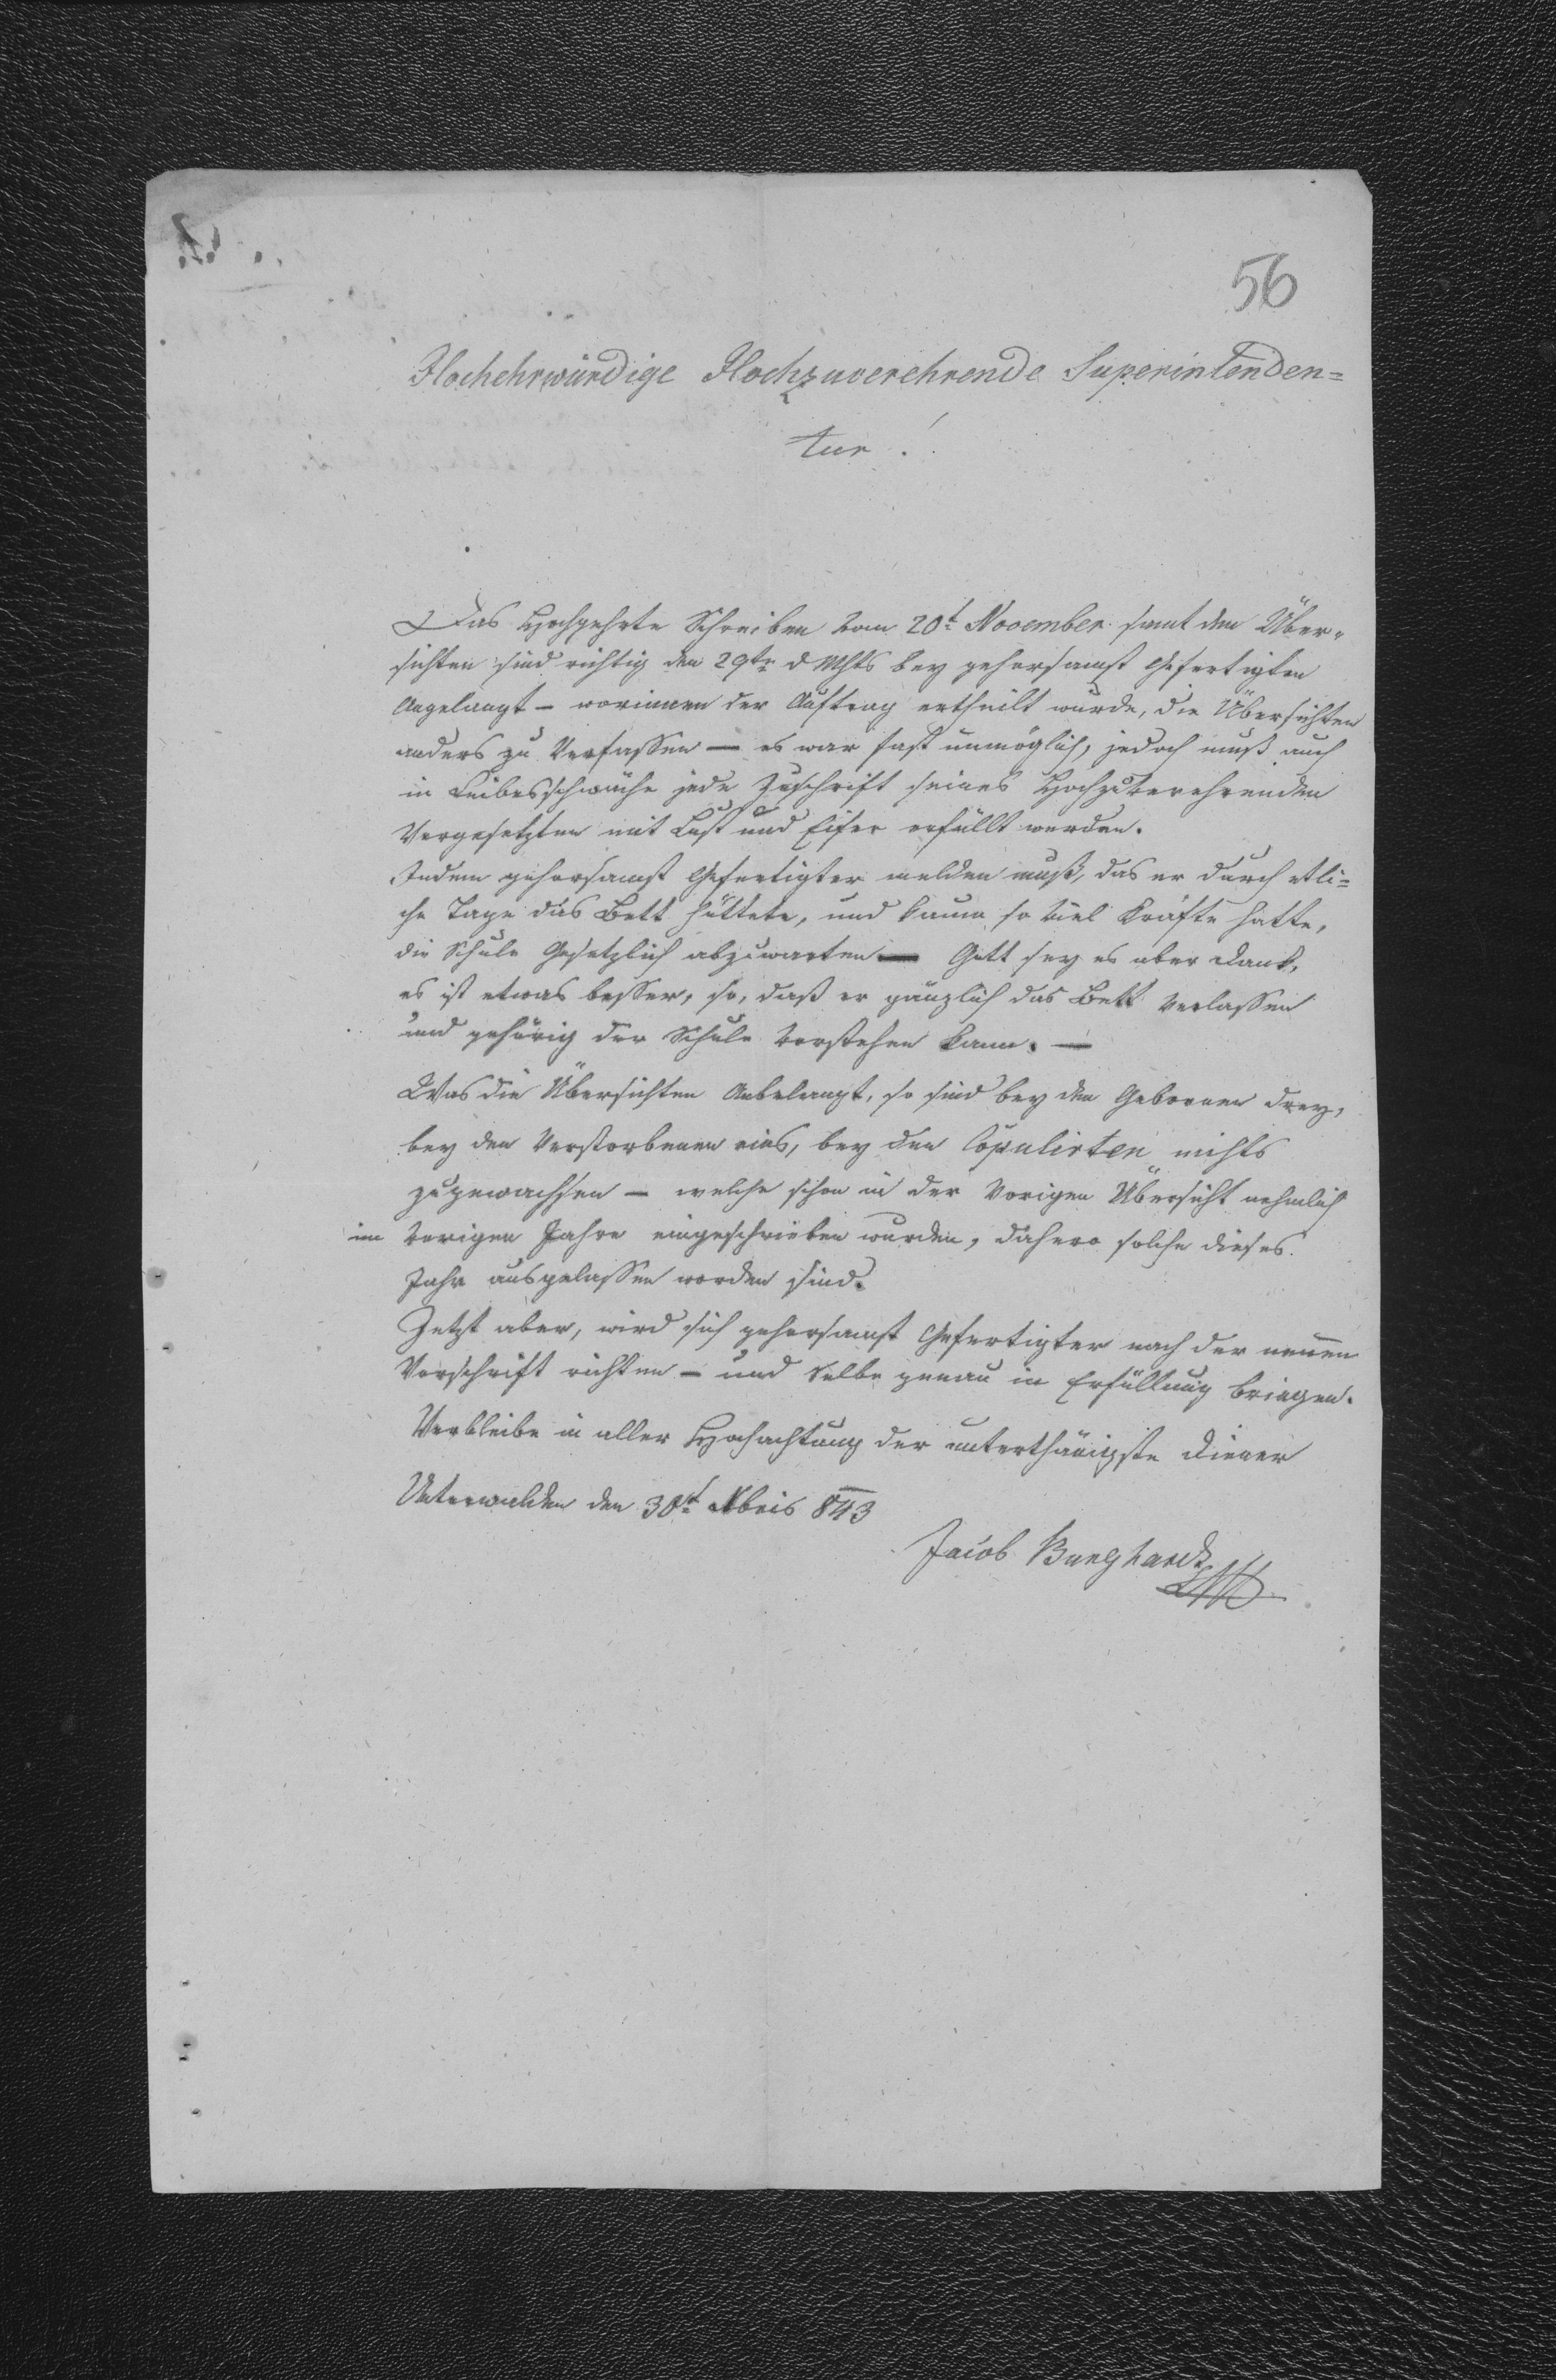 56
Hochehrwürdige Hochzuverehrende Superintenden=
tur!
Das Hochgehrte Schreiben vom 20t November samt den Über-
sichten sind richtig den 29tn d Mhts bey gehorsamst Gefertigten
Angelangt – worinnen der Auftrag ertheilt wurde, die Übersichten
anders zu Verfassen — es war fast unmöglich, jedoch muß auch
in Leibesschwäche jede Zuschrift seines Hochzuverehrenden
Vorgesetzten mit Lust und Eifer erfüllt werden.
Indem gehorsamst Gefertigter melden muß, das er durch etli=
che Tage das Bett hüttete, und kaum so viel Kräfte hatte,
die Schule Gesetzlich abzuwarten — Gott sey es aber Dank,
es ist etwas besser, so, daß er gänzlich das Bett Verlassen
und gehörig der Schule vorstehen kann. —
Was die Übersichten Anbelangt, so sind bey den Gebornen drey,
bey den Verstorbenen eins, bey den Copulirten nichts
zugewachsen – welche schon in der Vorigen Übersicht nehmlich
im vorigen Jahre eingeschrieben wurden, dahero solche dieses
Jahr ausgelassen worden sind.
Jetzt aber, wird sich gehorsamst Gefertigter nach der neuen
Vorschrift richten – und selbe genau in Erfüllung bringen.
Verbleibe in aller Hochachtung der unterthänigste Diener
Unterwalden den 30t Nbris 843
Jacob Burghardt